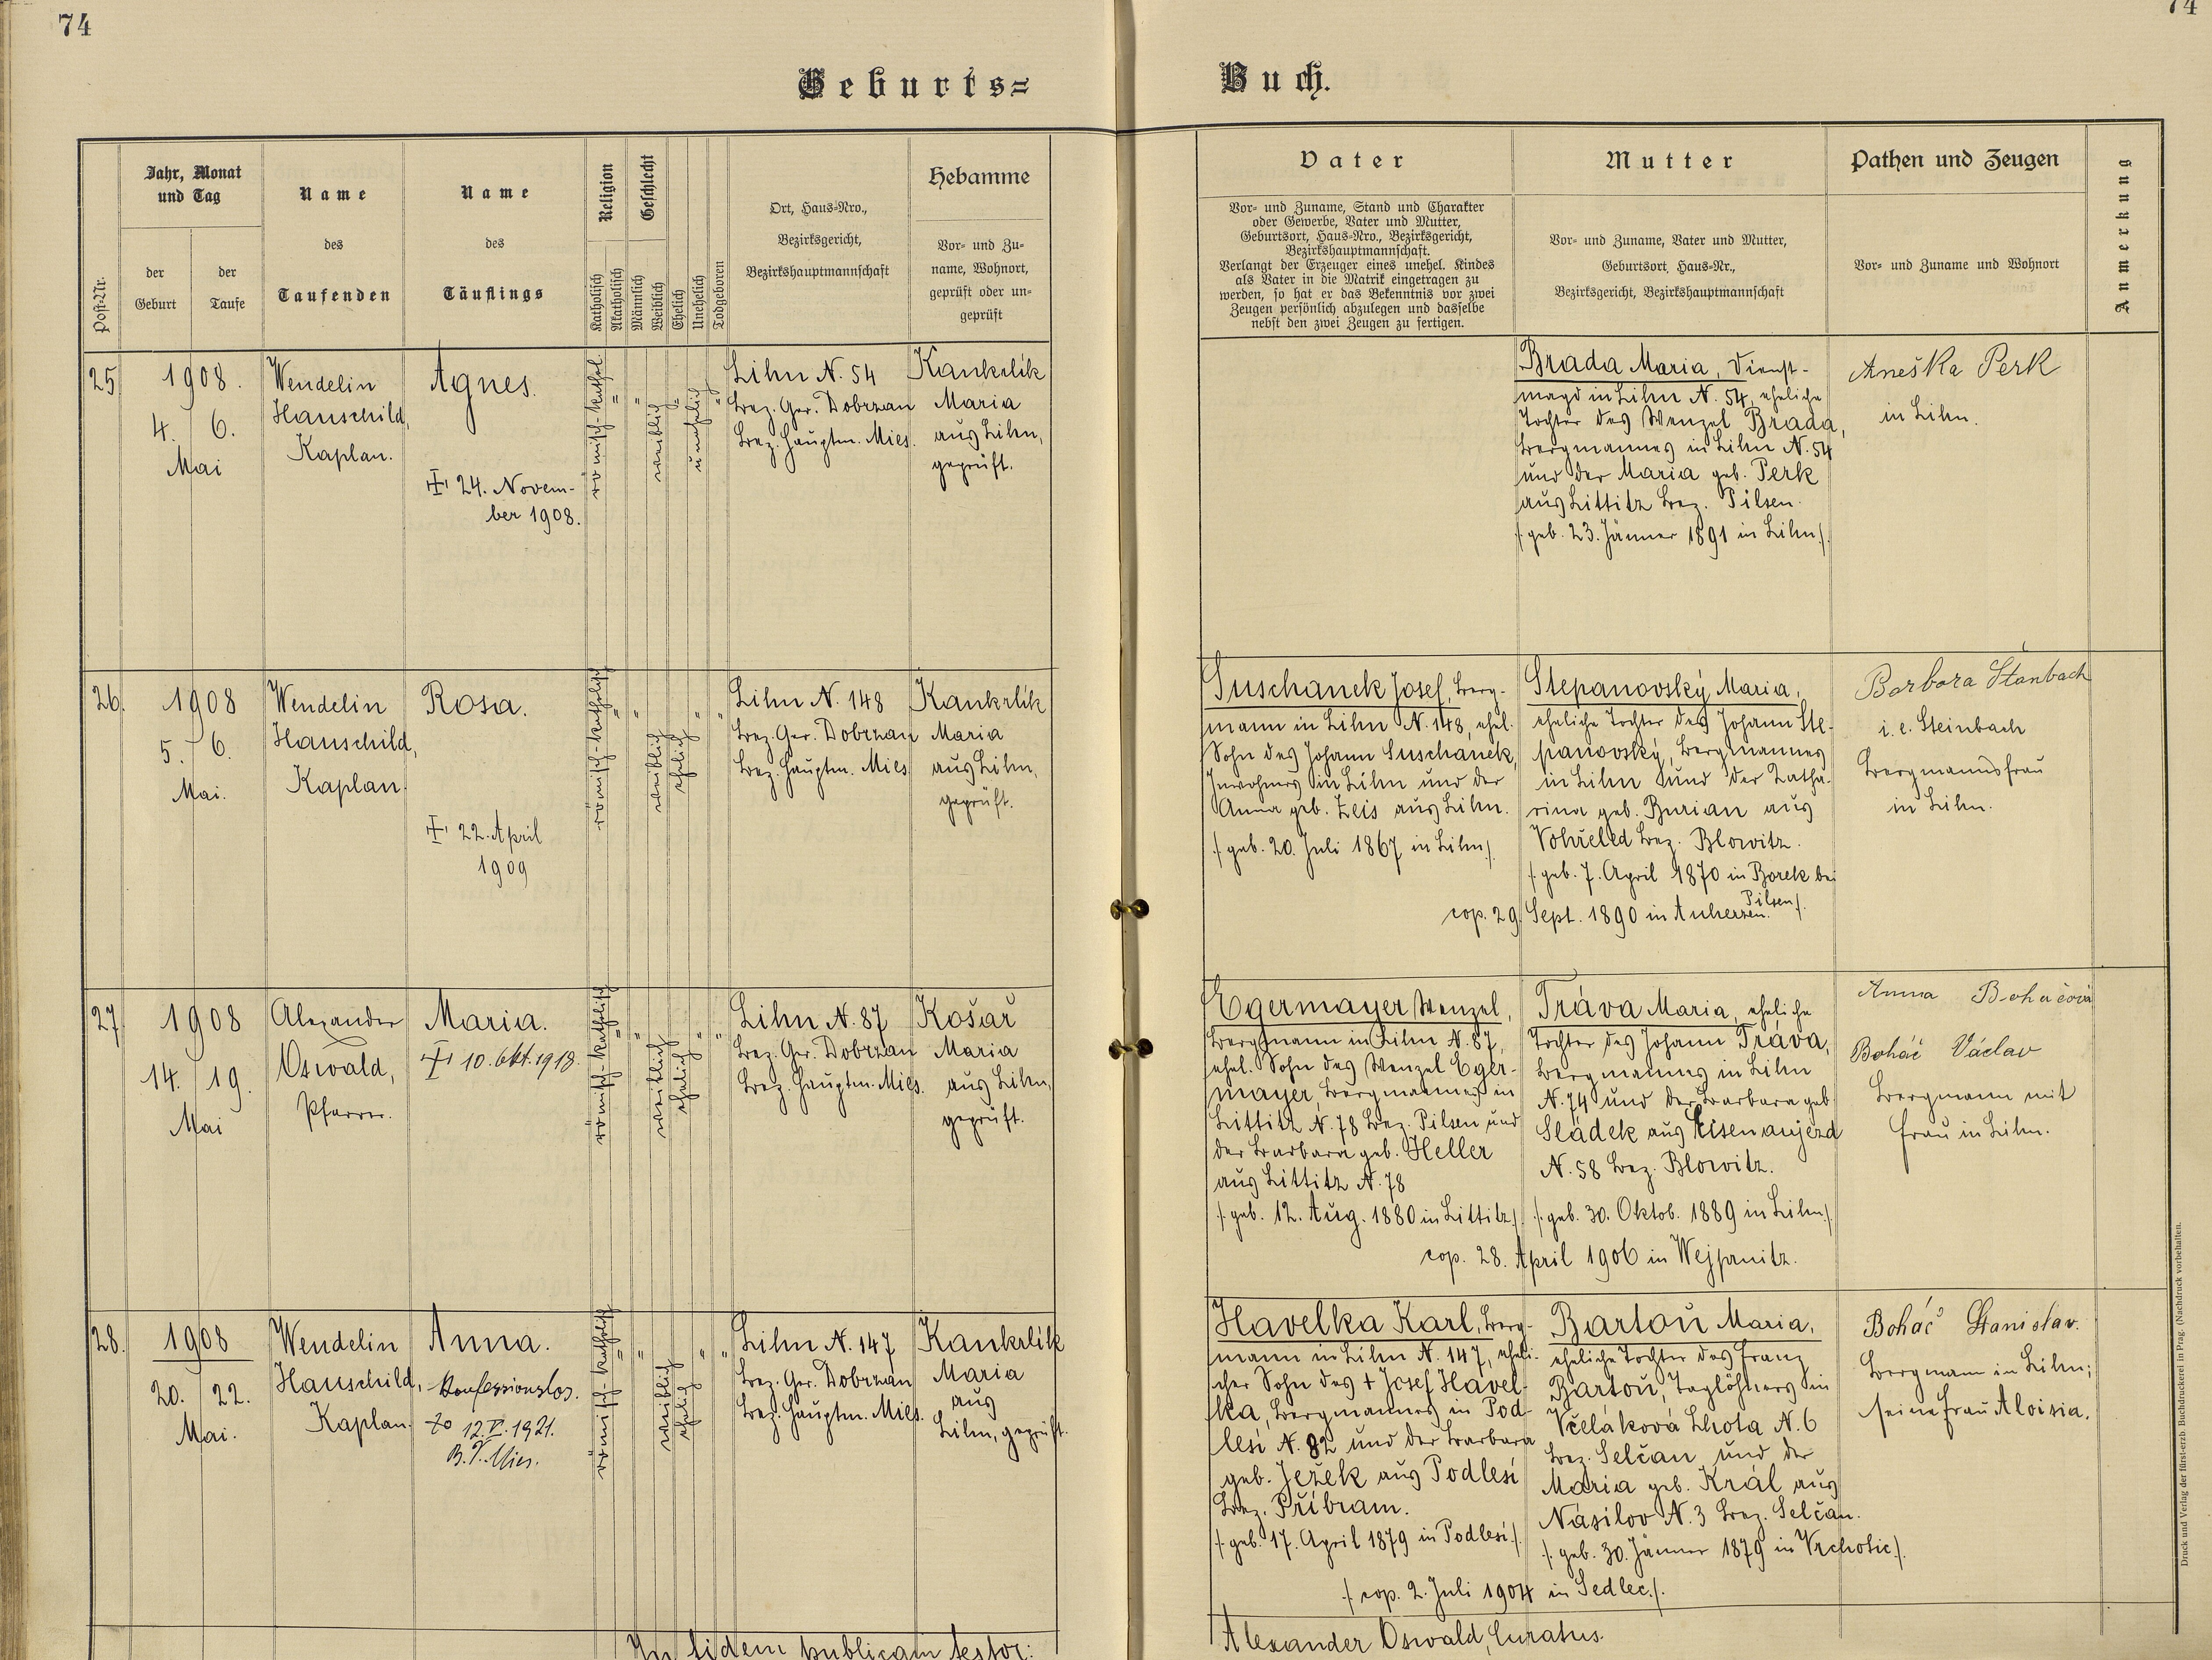 74
74
Geburts=
Buch.
Post-Nr.
Jahr, Monat
und Tag
der
Geburt
der
Taufe
Name
des
Taufenden
Name
des
Täuflings
Religion
Katholisch
Akatholisch
Geschlecht
Männlich
Weiblich
Ehelich
Unehelich
Todgeboren
Ort, Haus-Nro.,
Bezirksgericht,
Bezirkshauptmannschaft
Hebamme
Vor- und Zu-
name, Wohnort,
geprüft oder un-
geprüft
Vater
Vor- und Zuname, Stand und Charakter
oder Gewerbe, Vater und Mutter,
Geburtsort, Haus-Nro., Bezirksgericht,
Bezirkshauptmannschaft.
Verlangt der Erzeuger eines unehel. Kindes
als Vater in die Matrik eingetragen zu
werden, so hat er das Bekenntnis vor zwei
Zeugen persönlich abzulegen und dasselbe
nebst den zwei Zeugen zu fertigen.
Mutter
Vor- und Zuname, Vater und Mutter,
Geburtsort, Haus-Nr.,
Bezirksgericht, Bezirkshauptmannschaft
Pathen und Zeugen
Vor- und Zuname und Wohnort
Anmerkung
25
1908.
4. 6.
Mai
Wendelin
Hauschild,
Kaplan.
Agnes.
24. Novem-
ber 1908.
römisch-kathol.
weiblich
unehelich
Lihn N. 54
Bez. Ger. Dobrzan
Bez. Hauptm. Mies.
Kankrlík
Maria
aus Lihn,
geprüft.
Brada Maria, Dienst-
magd in Lihn N. 54, eheliche
Tochter des Wenzel Brada,
Bergmannes in Lihn N. 54
und der Maria geb. Perk
aus Littitz Bez. Pilsen.
/: geb. 23. Jänner 1891 in Lihn :/.
Aneška Perk
in Lihn.
26.
1908
5. 6.
Mai.
Wendelin
Hauschild,
Kaplan.
Rosa.
22. April
1909
römisch-katholisch
weiblich
ehelich
Lihn N. 148
Bez. Ger. Dobrzan
Bez. Hauptm. Mies
Kankrlík
Maria
aus Lihn,
geprüft.
Suschanek Josef, Berg-
mann in Lihn N. 148, ehel.
Sohn des Johann Suschanek,
Inwohners in Lihn und der
Anna geb. Zeis aus Lihn.
/: geb. 20. Juli 1867 in Lihn :/.
Stepanovský Maria,
eheliche Tochter des Johann Ste-
panovský, Bergmannes
in Lihn und der Katha-
rina geb. Burian aus
Vohřeled Bez. Blowitz.
/: geb. 7. April 1870 in Borek bei
Pilsen :/.
cop. 29. Sept. 1890 in Auherzen.
Barbora Štanbach
i. e. Steinbach
Bergmannsfrau
in Lihn.
27
1908
14. 19.
Mai
Alexander
Oswald,
Pfarrer.
Maria.
10. Okt. 1918.
römisch-katholisch
weiblich
ehelich
Lihn N. 87
Bez. Ger. Dobrzan
Bez. Hauptm. Mies.
Košař
Maria
aus Lihn,
geprüft.
Egermayer Wenzel,
Bergmann in Lihn N. 87,
ehel. Sohn des Wenzel Eger-
mayer Bergmannes in
Littitz N. 78 Bez. Pilsen und
der Barbara geb. Heller
aus Littitz N. 78
/: geb. 12. Aug. 1880 in Littitz :/
Tráva Maria, eheliche
Tochter des Johann Tráva,
Bergmannes in Lihn
N. 74 und der Barbara geb.
Sládek aus Eisenaujezd
N. 58 Bez. Blowitz.
/: geb. 30. Oktob. 1889 in Lihn :/.
cop. 28. April 1906 in Wejprnitz.
Anna Boháčová
Boháč Václav
Bergmann mit
Frau in Lihn.
28.
1908
20. 22.
Mai.
Wendelin
Hauschild,
Kaplan.
Anna.
Konfessionslos.
12.V. 1921.
Mies.
römisch-katholisch
weiblich
ehelich
Lihn N. 147
Bez. Ger. Dobrzan
Bez. Hauptm. Mies.
Kankrlík
Maria
aus
Lihn, geprüft.
Havelka Karl, Berg-
mann in Lihn N. 147, eheli-
cher Sohn des † Josef Havel-
ka, Bergmannes in Pod-
lesí N. 82 und der Barbara
geb. Ježek aus Podlesí
Bez. Příbram.
/: geb. 17. April 1879 in Podlesí :/.
Bartoň Maria,
eheliche Tochter des Franz
Bartoň, Taglöhners in
Včeláková Lhota N. 6
Bez. Selčan und der
Maria geb. Král aus
Násilov N. 3 Bez. Selčan.
/: geb. 30. Jänner 1879 in Vrchotic :/.
/: cop. 2. Juli 1904 in Sedlec :/.
Boháč Stanislav.
Bergmann in Lihn;
seine Frau Aloisia.
In fidem publicam testor:
Alexander Oswald, Curatus.
Druck und Verlag der fürst-erzb. Buchdruckerei in Prag. (Nachdruck vorbehalten.